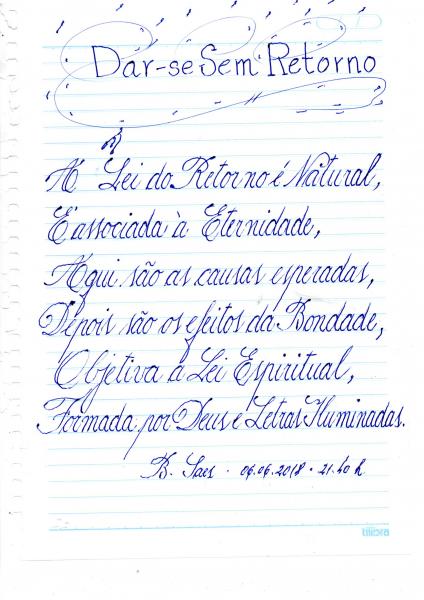 Dar-se Sem Retorno
A Lei do Retorno é Natural,
É associada à Eternidade,
Aqui são as causas esperadas,
Depois são os efeitos da Bondade,
Objetiva a Lei Espiritual,
Formada por Deus e Letras Iluminadas.
B. Saes - 06.06.2018 - 21.40 h
tilibra